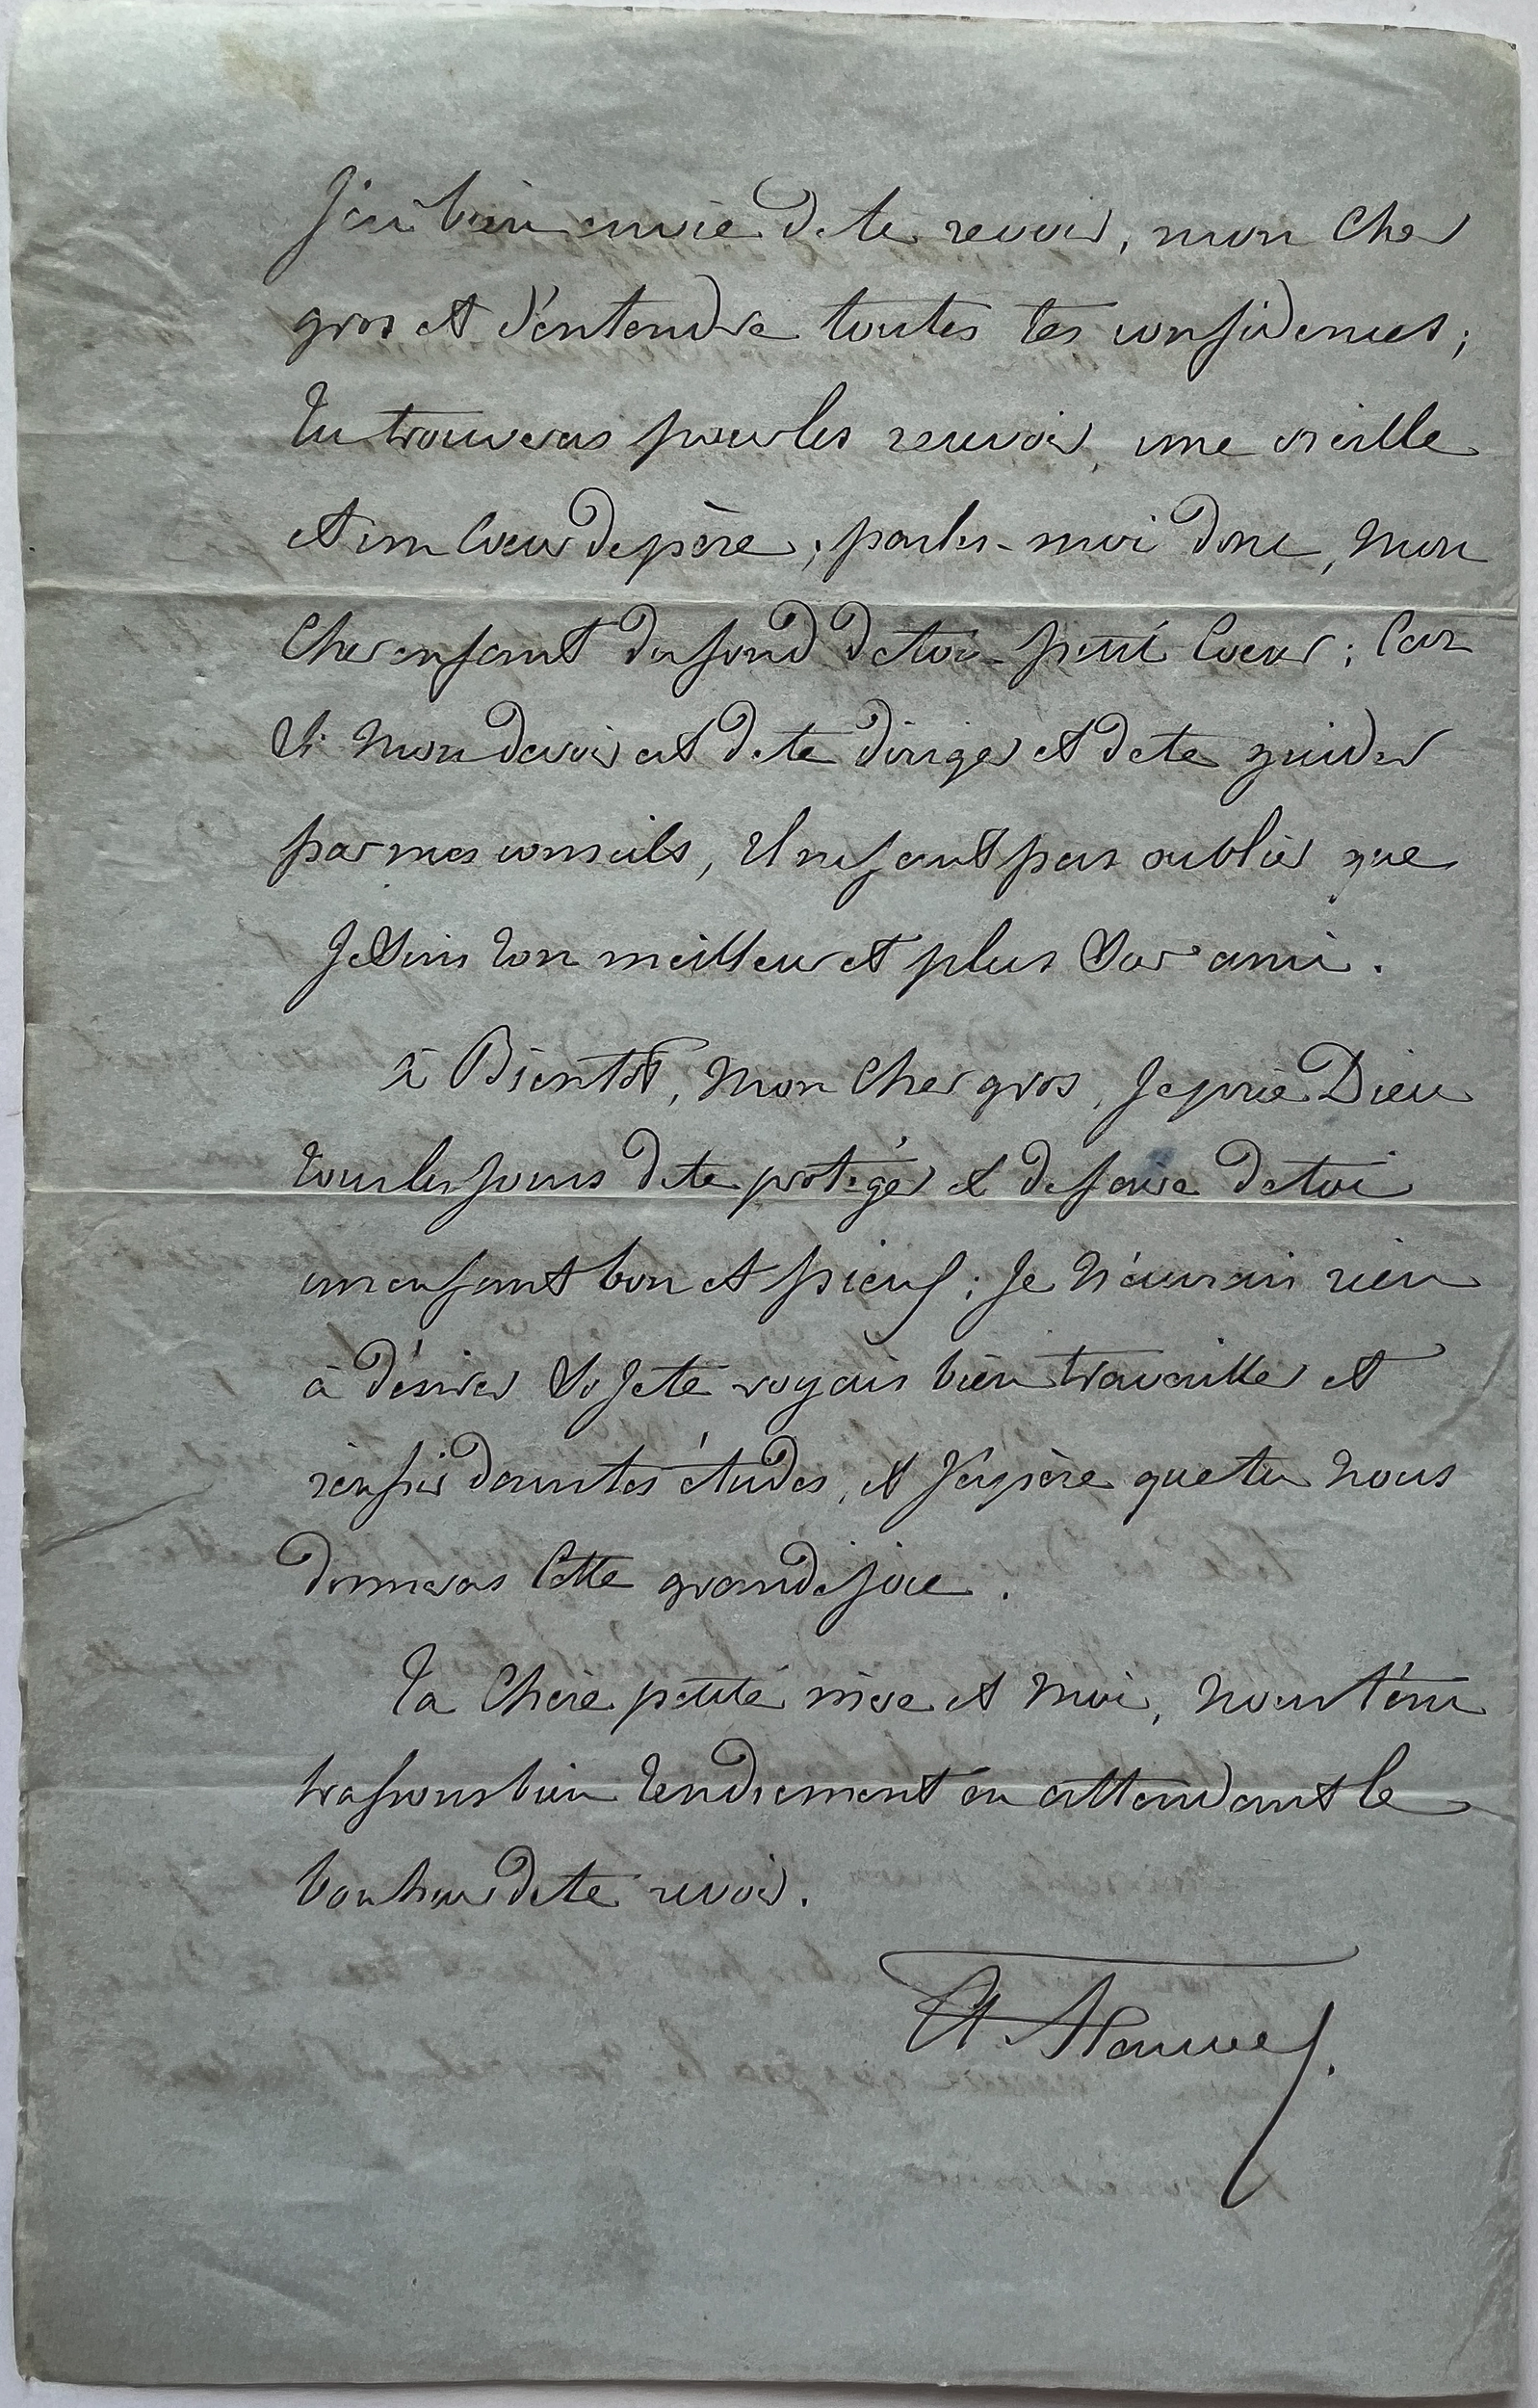 J'ai bien envie de te revoir, mon cher
gros et d'entendre toutes tes confidences ;
tu trouveras pour les recevoir, une vieille
et un coeur de père ; parles-moi donc, mon
cher enfant du fond de ton petit coeur ; car
si mon devoir est de te diriger et de te guider
par mes conseils, il ne faut pas oublier que
je suis ton meilleur et plus sur ami.
à Bientôt, mon cher gros, je prie Dieu
tous les jours de te protéger & de faire de toi
un enfant bon et pieux ; je n'aurais rien
à désirer si je te voyais bien travailler et
réussir dans tes études, et j'espère que tu nous
donneras cette grande joie.
Ta chère petite mère et moi, nous t'em
brassons bien tendrement en attendant le
bonheur de te revoir.